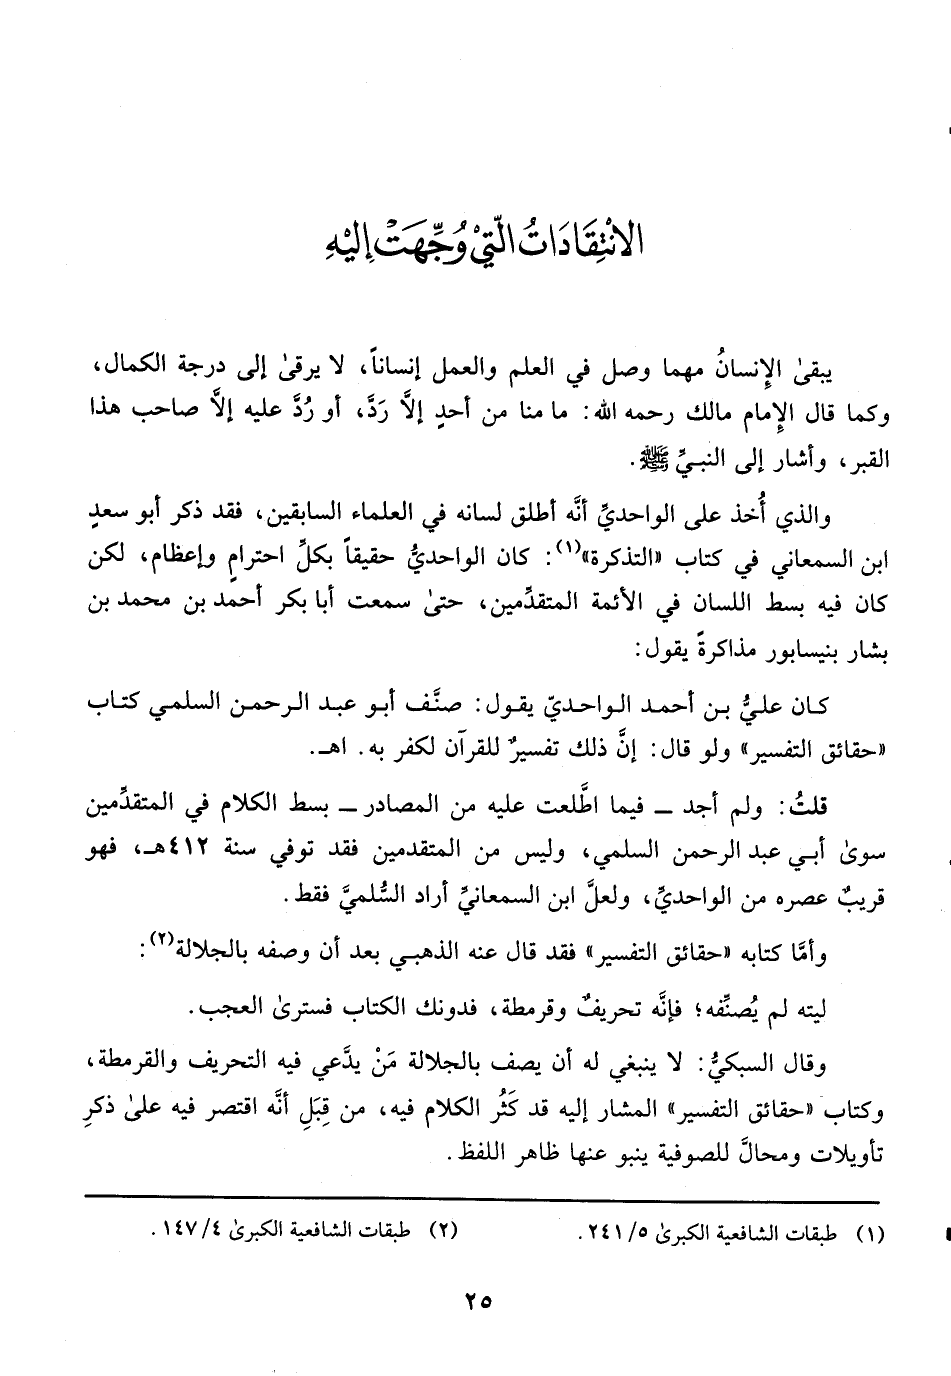 الانْتِقَادَاتُ الَّتِيْ وُجِّهَتْ إِلَيْهِ
يبقىٰ الإِنسانُ مهما وصل في العلم والعمل إنساناً، لا يرقىٰ إلى درجة الكمال،
وكما قال الإِمام مالك رحمه الله: ما منا من أحدٍ إلَّا رَدَّ، أو رُدَّ عليه إلَّا صاحب هذا
القبر، وأشار إلى النبيِّ ﷺ.
والذي أُخذ على الواحديِّ أنَّه أطلق لسانه في العلماء السابقين، فقد ذكر أبو سعدٍ
ابن السمعاني في كتاب «التذكرة»(١): كان الواحديُّ حقيقاً بكلِّ احترامٍ وإعظام، لكن
كان فيه بسط اللسان في الأئمة المتقدِّمين، حتىٰ سمعت أبا بكر أحمد بن محمد بن
بشار بنيسابور مذاكرةً يقول:
كان عليُّ بن أحمد الواحديّ يقول: صنَّف أبو عبد الرحمن السلمي كتاب
«حقائق التفسير» ولو قال: إنَّ ذلك تفسيرٌ للقرآن لكفر به. اهـ.
قلتُ: ولم أجد ــ فيما اطَّلعت عليه من المصادر ــ بسط الكلام في المتقدِّمين
سوىٰ أبي عبد الرحمن السلمي، وليس من المتقدمين فقد توفي سنة ٤١٢هـ، فهو
قريبٌ عصره من الواحديِّ، ولعلَّ ابن السمعانيِّ أراد السُّلميَّ فقط.
وأمَّا كتابه «حقائق التفسير» فقد قال عنه الذهبي بعد أن وصفه بالجلالة(٢):
ليته لم يُصنِّفه؛ فإنَّه تحريفٌ وقرمطة، فدونك الكتاب فسترىٰ العجب.
وقال السبكيُّ: لا ينبغي له أن يصف بالجلالة مَنْ يدَّعي فيه التحريف والقرمطة،
وكتاب «حقائق التفسير» المشار إليه قد كَثُر الكلام فيه، من قِبَلِ أنَّه اقتصر فيه علىٰ ذكرِ
تأويلات ومحالَّ للصوفية ينبو عنها ظاهر اللفظ.
(١) طبقات الشافعية الكبرىٰ ٢٤١/٥.
(٢) طبقات الشافعية الكبرىٰ ١٤٧/٤.
٢٥